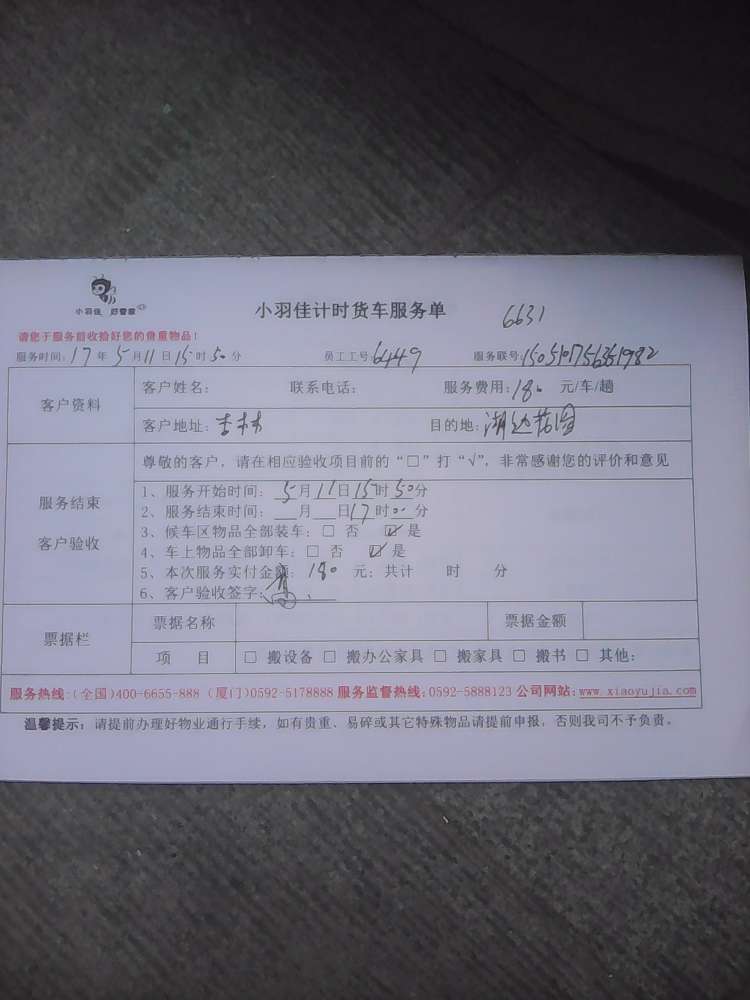 小羽佳 好管家
小羽佳计时货车服务单 6631
请您于服务前收拾好您的贵重物品！
服务时间：17年5月11日15时50分 员工工号6449 服务联号：
客户资料
客户姓名： 联系电话： 服务费用：180 元/车/趟
客户地址：杏林 目的地：湖边花园
尊敬的客户，请在相应验收项目前的“□”打“√”，非常感谢您的评价和意见
服务结束
客户验收
1、服务开始时间：5月11日15时50分
2、服务结束时间：__月__日17时00分
3、候车区物品全部装车：□ 否 ☑ 是
4、车上物品全部卸车：□ 否 ☑ 是
5、本次服务实付金额：180 元；共计 时 分
6、客户验收签字：
票据栏
票据名称 票据金额
项 目 □ 搬设备 □ 搬办公家具 □ 搬家具 □ 搬书 □ 其他：
服务热线：(全国)400-6655-888 (厦门)0592-5178888 服务监督热线：0592-5888123 公司网站：www.xiaoyujia.com
温馨提示：请提前办理好物业通行手续，如有贵重、易碎或其它特殊物品请提前申报，否则我司不予负责。